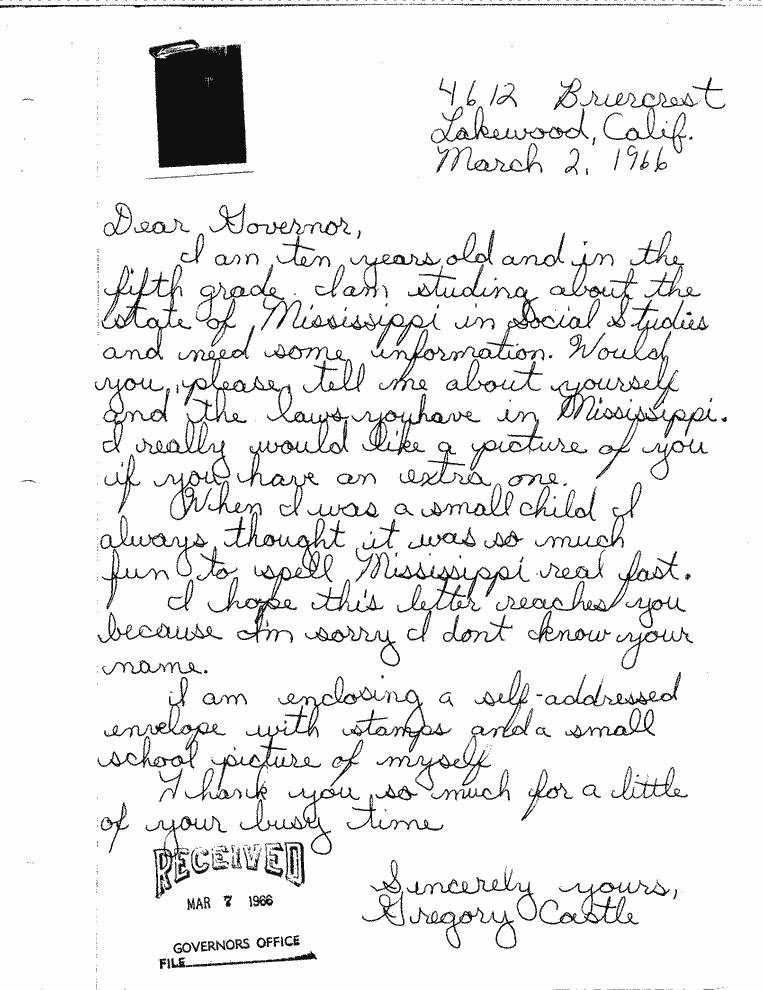 4612 Briercrest
Lakewood, Calif.
March 2, 1966
Dear Governor,
I am ten years old and in the
fifth grade. I am studing about the
state of Mississippi in Social Studies
and need some information. Would
you, please, tell me about yourself
and the laws you have in Mississippi.
I really would like a picture of you
if you have an extra one.
When I was a small child I
always thought it was so much
fun to spell Mississippi real fast.
I hope this letter reaches you
because I'm sorry I dont know your
name.
I am enclosing a self-addressed
envelope with stamps and a small
school picture of myself
Thank you so much for a little
of your busy time
Sincerely yours,
Gregory Castle
RECEIVED
MAR 7 1966
GOVERNORS OFFICE
FILE